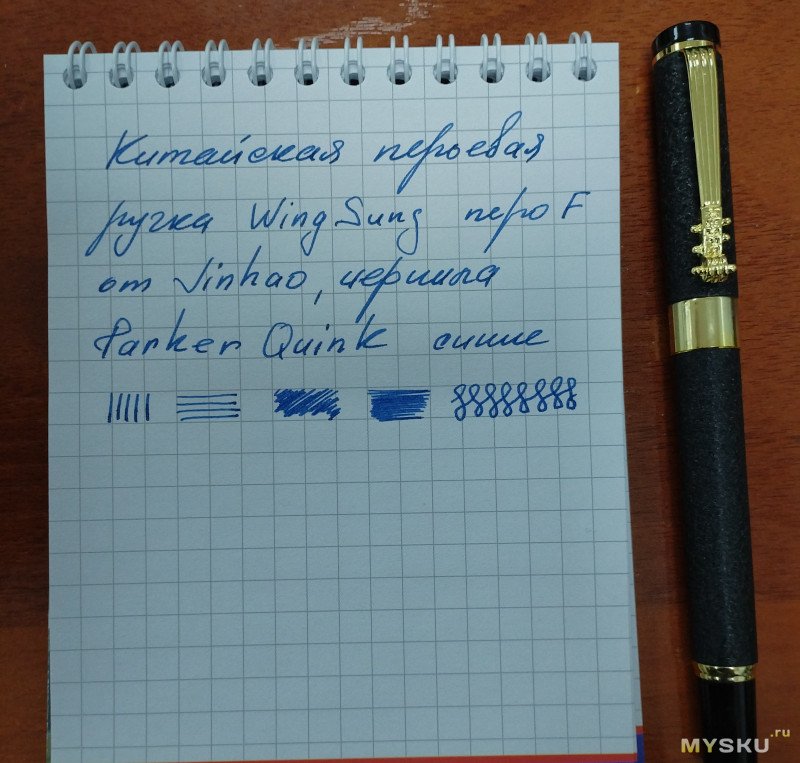 Китайская перьевая
ручка Wing Sung перо F
от Jinhao, чернила
Parker Quink синие
MYSKU.ru